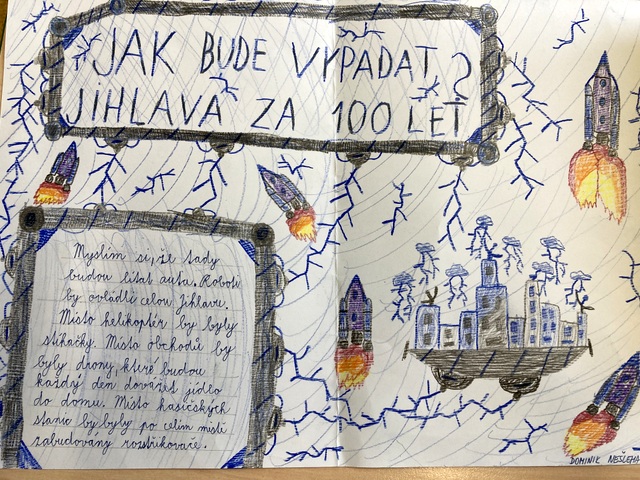 JAK BUDE VYPADAT ?
JIHLAVA ZA 100 LET
Myslím si, že tady
budou lítat auta. Roboti
by ovládli celou jihlavu.
Místo helikoptér by byly
stíhačky. Místo obchodů by
byly drony které budou
každý den dovážet jídlo
do domu. Místo hasičských
stanic by byly po celím místi
zabudovany rozstřikovače.
DOMINIK NEŠLEHA